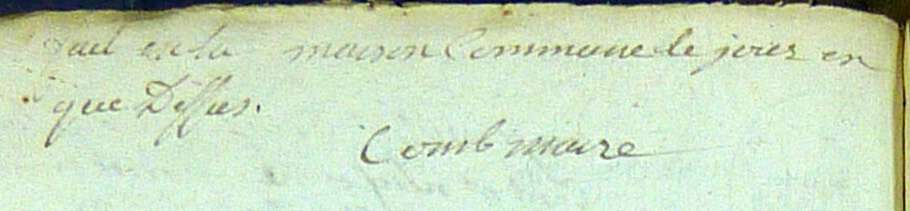 fait en la maison Commune le jour en
que Dessus.
Comb maire